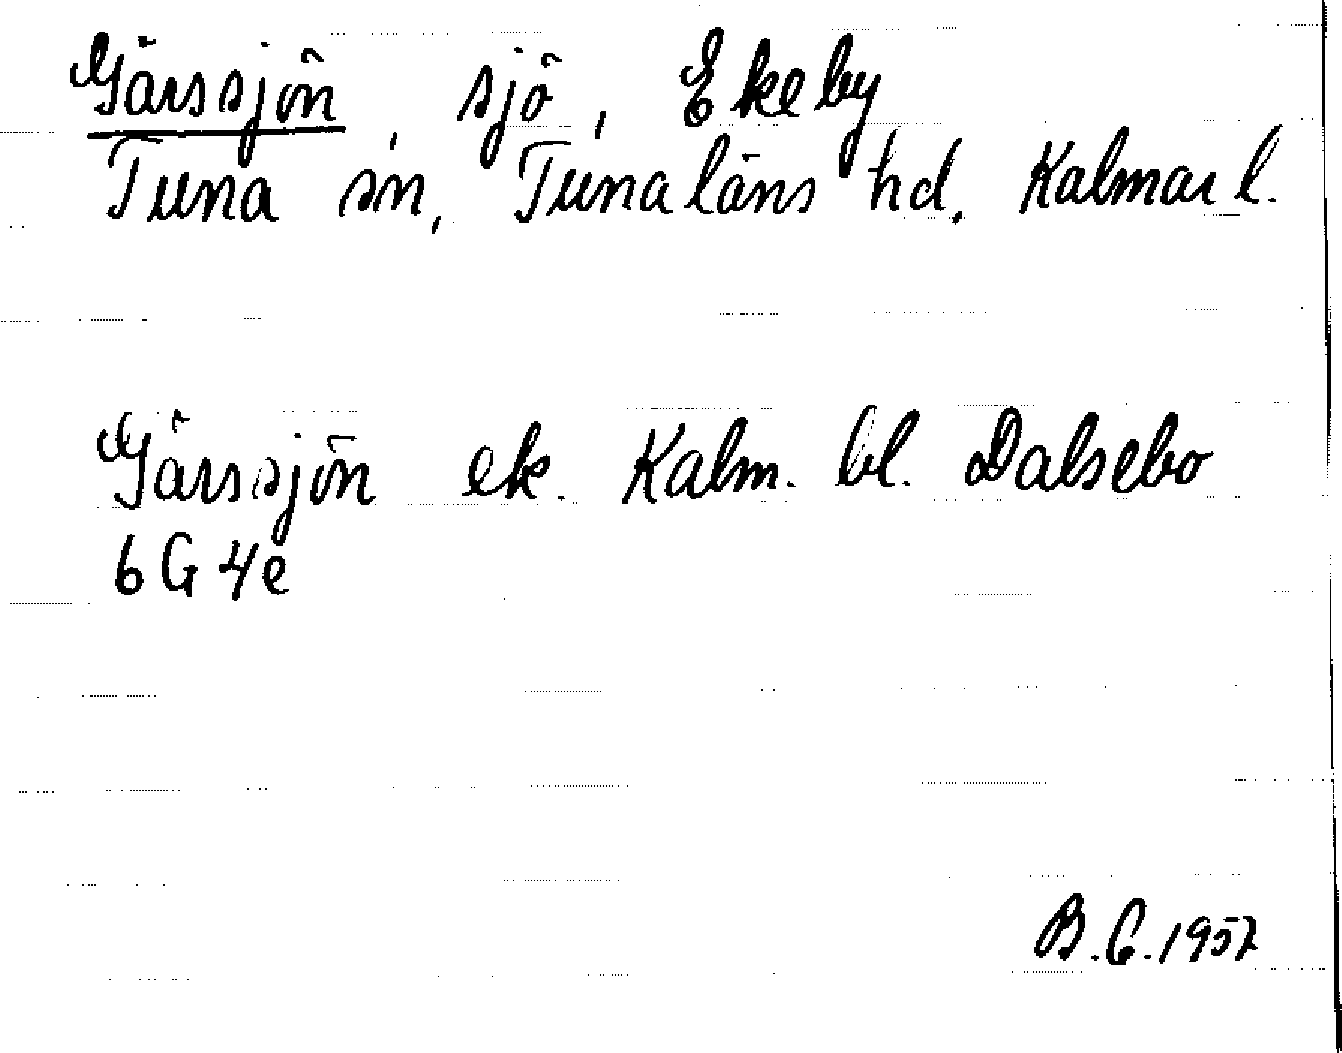 Gärssjön, sjö, Ekeby
Tuna sn, Tunaläns hd. Kalmar l.
Gärssjön ek. Kalm. bl. Dalsebo
6 G 4e
B.G.1957